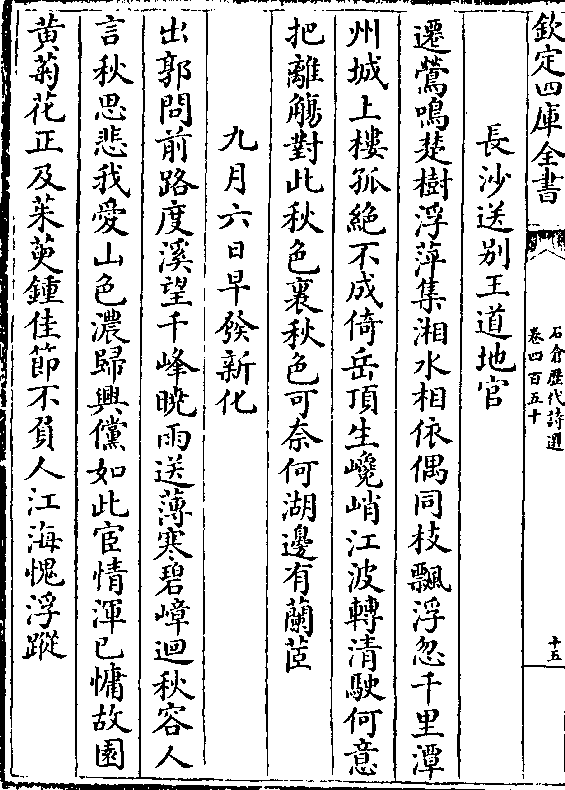 欽定四庫全書
石倉歷代詩選
卷四百五十
十五
長沙送别王道地官
遷鶯鳴楚樹浮萍集湘水相依偶同枝飄浮忽千里潭
州城上樓孤絶不成倚岳頂生巉峭江波轉清駛何意
把離觴對此秋色裏秋色可奈何湖邊有蘭茝
九月六日早發新化
出郭問前路度溪望千峰曉雨送薄寒碧嶂迴秋容人
言秋思悲我愛山色濃歸興儻如此宦情渾已慵故園
黄菊花正及茱萸鍾佳節不負人江海愧浮蹤